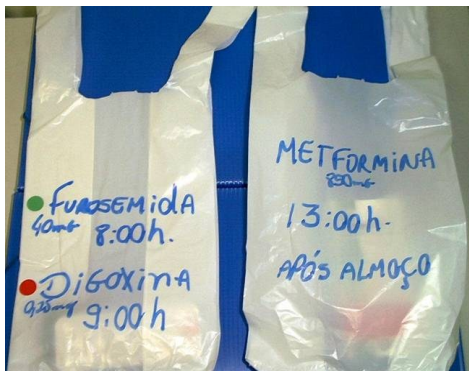 FUROSEMIDA
40mg
8:00h.
DIGOXINA
0,25mg
9:00h
METFORMINA
850mg
13:00h.
APÓS ALMOÇO